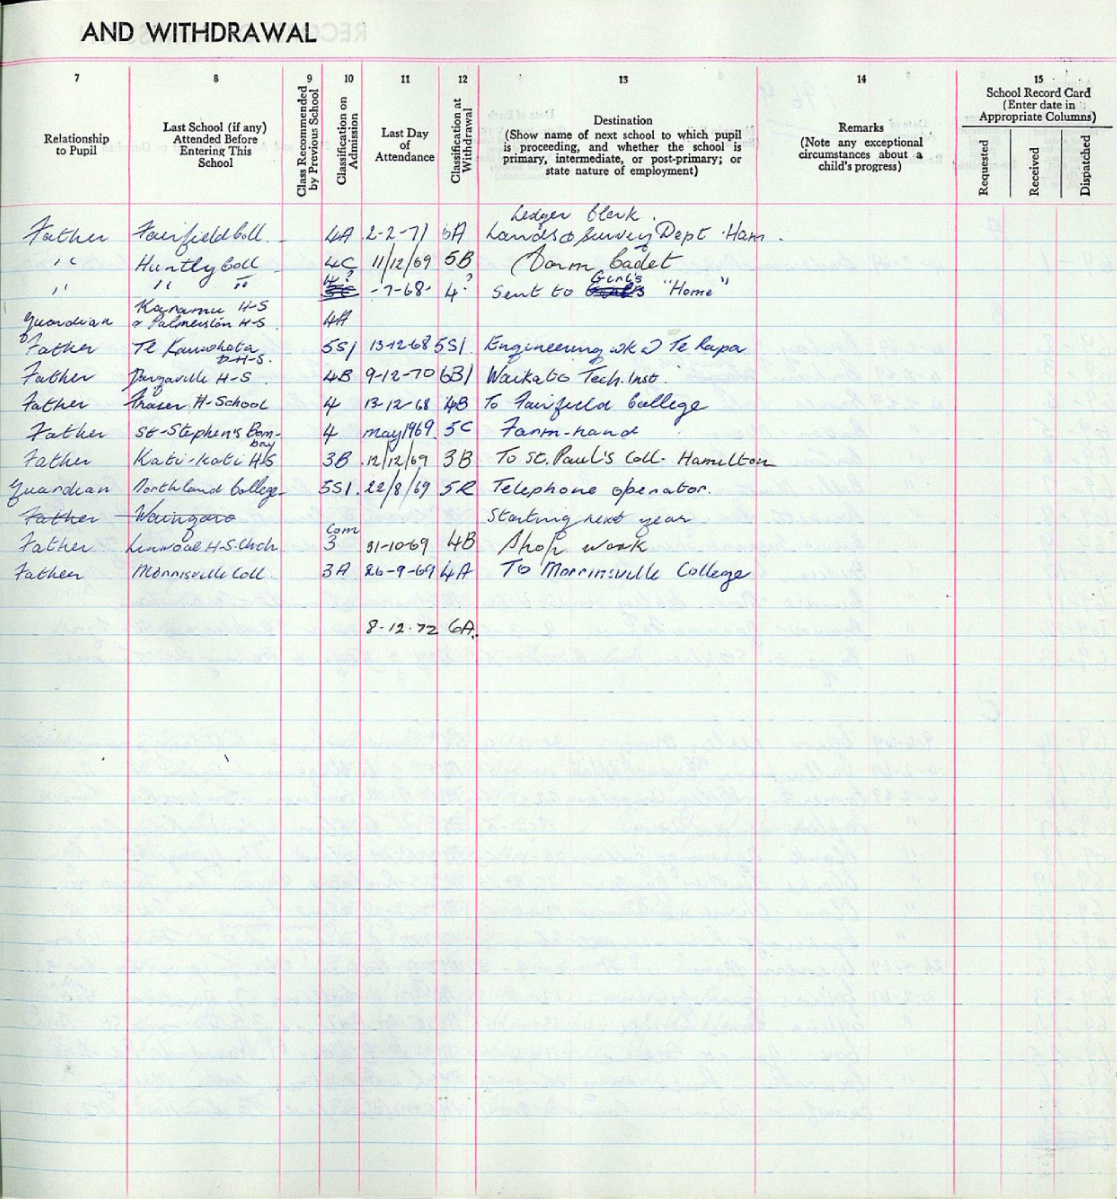 AND WITHDRAWAL
7 8 9 10 11 12 13 14 15
Relationship to Pupil
Last School (if any) Attended Before Entering This School
Class Recommended by Previous School
Classification on Admission
Last Day of Attendance
Classification at Withdrawal
Destination (Show name of next school to which pupil is proceeding, and whether the school is primary, intermediate, or post-primary; or state nature of employment)
Remarks (Note any exceptional circumstances about a child's progress)
School Record Card (Enter date in Appropriate Columns)
Requested Received Dispatched
Ledger Clerk.
Father Fairfield Coll. 4A 2-2-71 6A Lands & Survey Dept Ham.
" Huntly Coll 4C 11/12/69 5B Farm Cadet
" " " 4? -7-68- 4? Sent to Girl's "Home"
Karamu H-S
guardian & Palmerston H-S. 4A
Father Te Kauwhata D-H-S. 5S1 13-12-68 5S1. Engineering wk @ Te Rapa
Father Dargaville H-S. 4B 9-12-70 6B1 Waikato Tech. Inst.
Father Fraser H-School 4 13-12-68 4B To Fairfield College
Father St-Stephen's Bombay 4 May 1969 5C Farm-hand
Father Kati-Kati H-S 3B 12/12/69 3B To St. Paul's Coll. Hamilton
guardian Northland College 5S1. 22/8/69 5R Telephone operator.
Father Waingaro Starting next year
Father Linwood H-S. Chch. Com 3 31-10-69 4B Shop work
Father Morrinsville Coll. 3A 26-9-69 4A To Morrinsville College
8-12-72 6A.